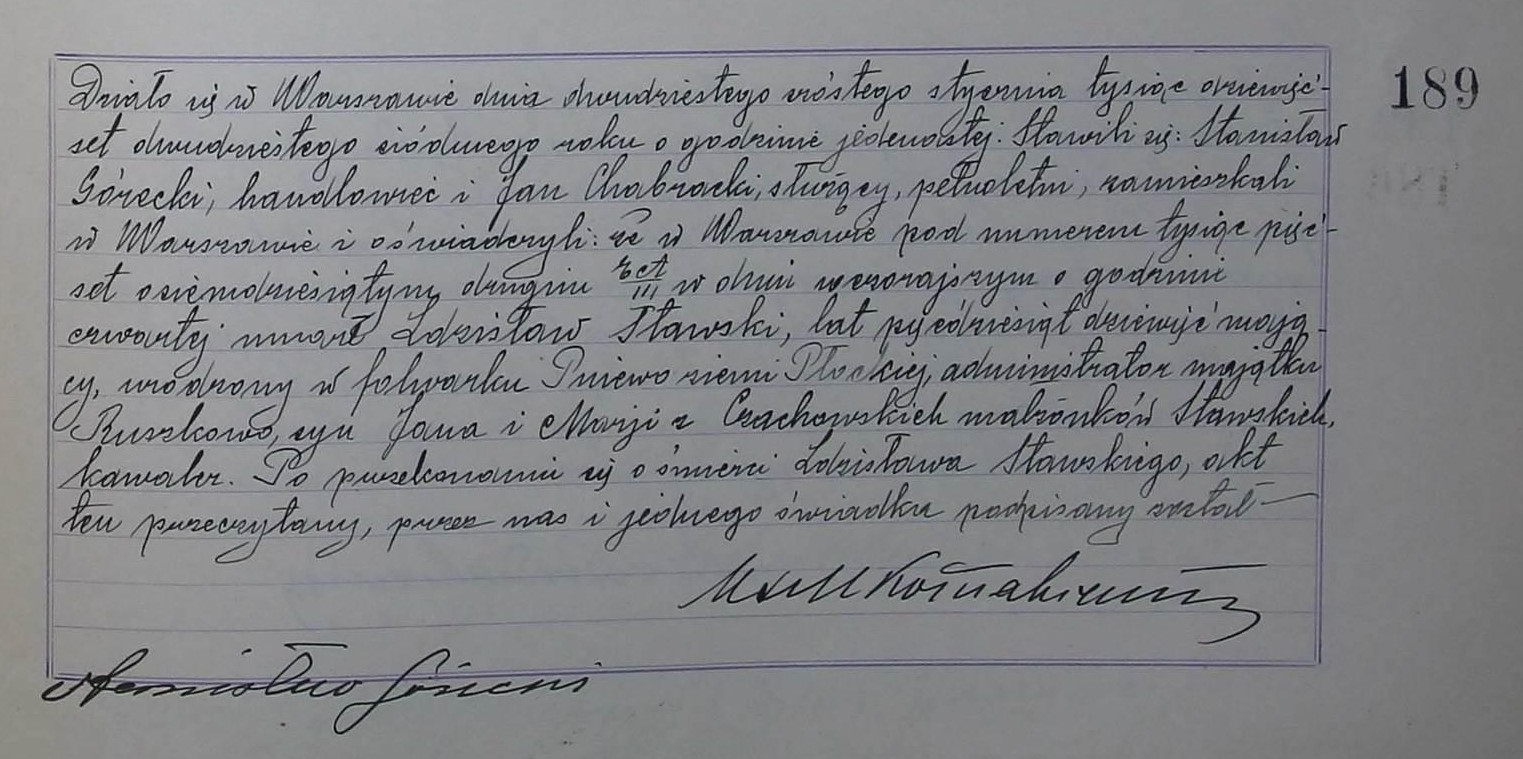 Działo się w Warszawie dnia dwudziestego szóstego stycznia tysiąc dziewięć-
set dwudziestego siódmego roku o godzinie jedenastej. Stawili się: Stanisław
Górecki, handlowiec i Jan Chabracki, służący, pełnoletni, zamieszkali
w Warszawie i oświadczyli: że w Warszawie pod numerem tysiąc pięć-
set osiemdziesiątym drugim III w dniu wczorajszym o godzinie
czwartej umarł Zdzisław Sławski, lat pięćdziesiąt dziewięć mają-
cy, urodzony w folwarku Pniewo ziemi Płockiej, administrator majątku
Ruszkowo, syn Jana i Marji z Czachowskich małżonków Sławskich,
kawaler. Po przekonaniu się o śmierci Zdzisława Sławskiego, akt
ten przeczytany, przez nas i jednego świadka podpisany został
Stanisław Górecki
189